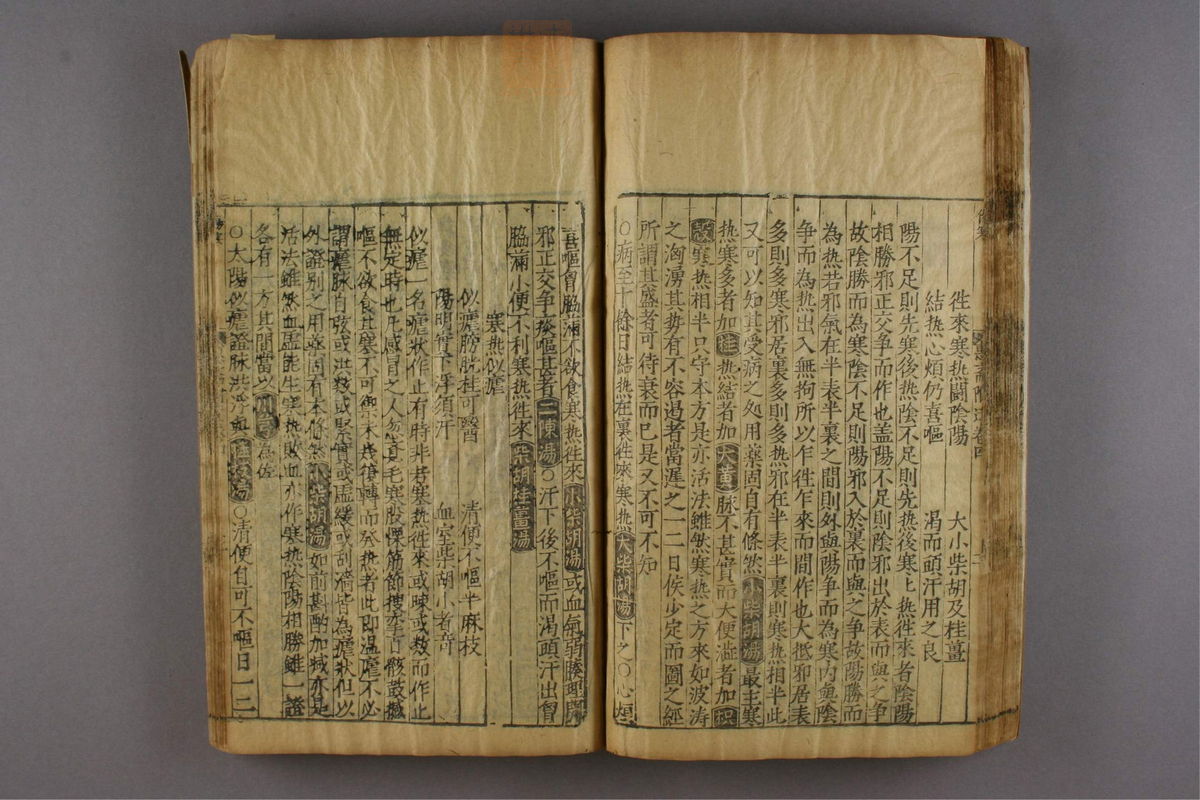 徃來寒热闘陰陽　大小柴胡及桂薑
結热心煩仍喜嘔　渴而頭汗用之良
陽不足則先寒後热陰不足則先热後寒上热徃來者陰陽
相勝邪正交争而作也盖陽不足則陰邪出於表而與之争
故陰勝而為寒陰不足則陽邪入於裏而與之争故陽勝而
為热若邪氣在半表半裏之間則外與陽争而為寒内與陰
争而為热出入無拘所以乍徃乍來而間作也大抵邪居表
多則多寒邪居裏多則多热邪在半表半裏則寒热相半此
又可以知其受病之処用藥固自有條然小柴胡湯最主寒
热寒多者加桂热結者加大黄脉不甚實而大便溢者加枳
殻寒热相半只守本方是亦活法雖然寒热之方來如波涛
之洶湧其勢有不容遏者當遲之一二日俟少定而圖之經
所謂其盛者可待衰而已是又不可不知
○病至十餘日結热在裏徃來寒热大柴胡湯下之○心煩
喜嘔胷脇滿不欲食寒热徃來小柴胡湯或血氣弱腠理開
邪正交争痰嘔甚者二陳湯○汗下後不嘔而渴頭汗出胷
脇滿小便不利寒热徃來柴胡桂薑湯
寒热似瘧
似瘧膀胱桂可醫　清便不嘔半麻枝
陽明實下浮須汗　血室柴胡小者竒
似瘧一名瘧狀作止有時非若寒热徃來或踈或数而作止
無定時也凡感冒之人忽覺毛寒股慄筋節摇百骸鼓撼
嘔不欲食其寒不可禦未幾復轉而發热者此即温瘧不必
謂瘧脉自弦或洪数或緊實或虚緩或刮濇皆為瘧狀但以
外證别之用藥固有本條然小柴胡湯如前斟酌加减亦是
活法雖然血虚能生寒热敗血亦作寒热陰陽相勝雖一證
各有一方其間當以川芎為佐
○太陽似瘧證脉洪浮桂枝湯○清便自可不嘔日一二